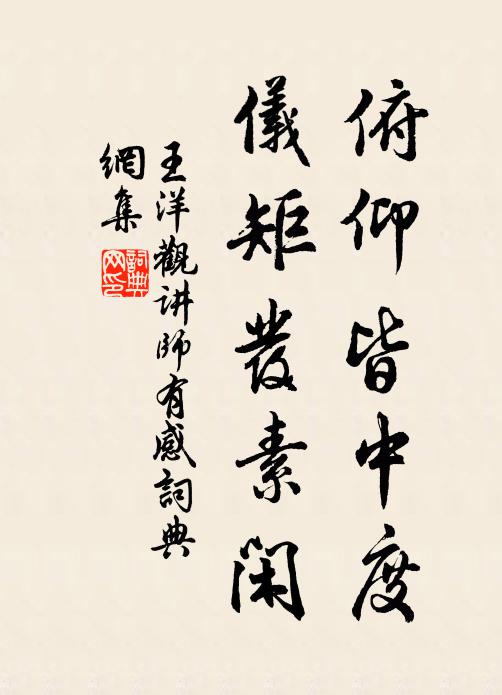 俯仰皆中度
儀矩發素閑
王洋觀讲師有感詞典
網集
詞典
网印